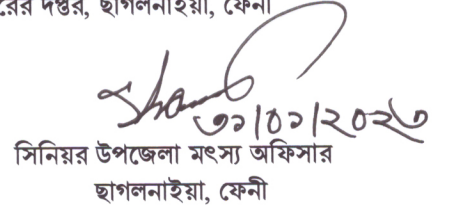 দপ্তর, ছাগলনাইয়া, ফেনী
৩১/০১/২০২৩
সিনিয়র উপজেলা মৎস্য অফিসার
ছাগলনাইয়া, ফেনী